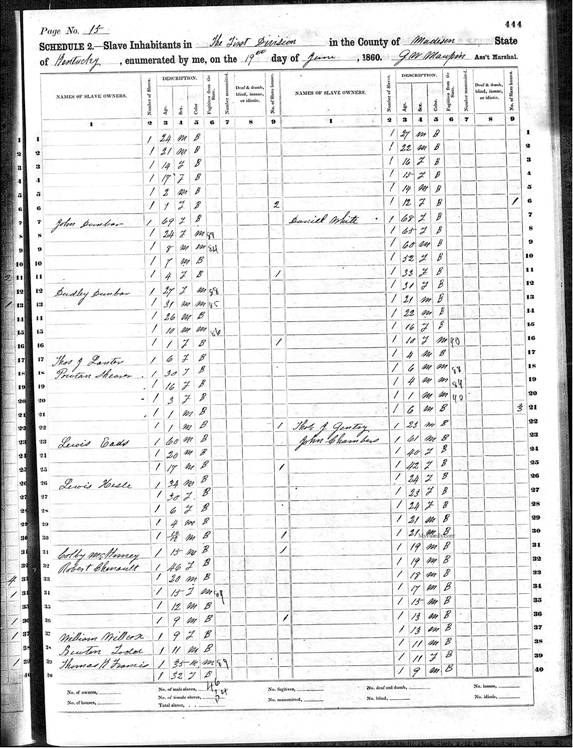 Page No. 15
444
SCHEDULE 2.—Slave Inhabitants in The First Division in the County of Madison State
of Kentucky, enumerated by me, on the 19 day of June, 1860. G W Maupin Ass't Marshal.
NAMES OF SLAVE OWNERS.
Number of Slaves.
DESCRIPTION.
Age.
Sex.
Color.
Fugitives from the State.
Number manumitted.
Deaf & dumb, blind, insane, or idiotic.
No. of Slave houses.
NAMES OF SLAVE OWNERS.
Number of Slaves.
DESCRIPTION.
Age.
Sex.
Color.
Fugitives from the State.
Number manumitted.
Deaf & dumb, blind, insane, or idiotic.
No. of Slave houses.
1 2 3 4 5 6 7 8 9 1 2 3 4 5 6 7 8 9
1 1 24 m B 1 27 m B 1
2 1 21 m B 1 22 m B 2
3 1 19 f B 1 16 f B 3
4 1 17 f B 1 15 f B 4
5 1 2 m B 1 14 m B 5
6 1 1 f B 2 1 12 f B 1 6
7 John Dunbar 1 69 f B Daniel White 1 68 f B 7
8 1 24 f m 1 65 f B 8
9 1 8 m m 1 60 m B 9
10 1 7 m B 1 52 f B 10
11 1 4 f B 1 1 33 f B 11
12 Dudley Dunbar 1 27 f m 1 31 f B 12
13 1 31 m m 1 21 m B 13
14 1 26 m B 1 22 m B 14
15 1 10 m m 1 16 f B 15
16 1 1 f B 1 1 10 f m 90 16
17 Thos J 1 6 f B 1 4 m B 17
18 Shearer 1 30 f B 1 6 m m 88 18
19 1 16 f B 1 4 m m 89 19
20 1 3 f B 1 1 m m 90 20
21 1 1 m B 1 6 m B 3 21
22 1 1 m B 1 Thos J Gentry 1 23 m B 22
23 Lewis Eads 1 60 m B John Chambers 1 61 m B 23
24 1 20 m B 1 40 f B 24
25 1 17 m B 1 1 42 f B 25
26 Lewis 1 34 m B 1 24 f B 26
27 1 30 f B 1 23 f B 27
28 1 6 f B 1 24 f B 28
29 1 4 m B 1 21 m B 29
30 1 m B 1 1 21 m B 30
31 Colby 1 15 m B 1 1 19 m B 31
32 Robert Chenault 1 46 f B 1 19 m B 32
33 1 20 m B 1 18 m B 33
34 1 15 f m 1 17 m B 34
35 1 12 m B 1 15 m B 35
36 1 9 m B 1 1 13 m B 36
37 William Willcox 1 9 f B 1 13 m B 37
38 Benton Todd 1 11 m B 1 11 m B 38
39 Thomas H Francis 1 35 m m 89 1 11 f B 39
40 1 32 f B 1 9 m B 40
No. of owners, No. of male slaves, 46 No. fugitives, No. deaf and dumb, No. insane,
No. of houses, No. of female slaves, 34 No. manumitted, No. blind, No. idiotic,
Total slaves,